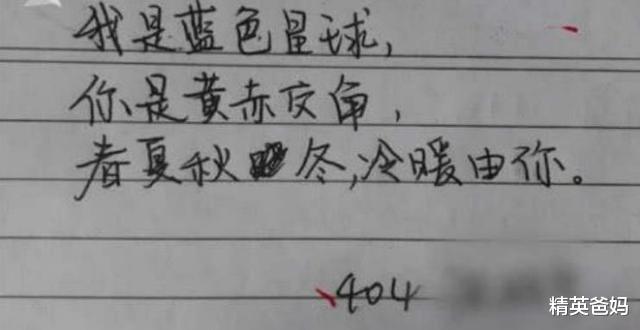 我是蓝色星球，
你是黄赤交角，
春夏秋冬，冷暖由你。
404
精英爸妈